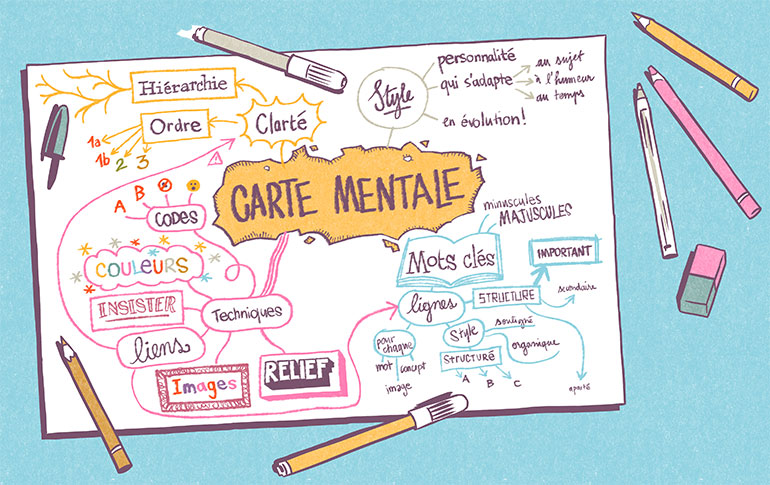 CARTE MENTALE
Clarté
Hiérarchie
Ordre
1a
1b
2
3
Style
personnalité
qui s'adapte
au sujet
à l'humeur
au temps
en évolution!
Techniques
CODES
A
B
COULEURS
INSISTER
liens
Images
RELIEF
Mots clés
minuscules
MAJUSCULES
lignes
pour
chaque
mot
concept
image
STRUCTURE
IMPORTANT
secondaire
aparté
Style
souligné
organique
STRUCTURÉ
A
B
C